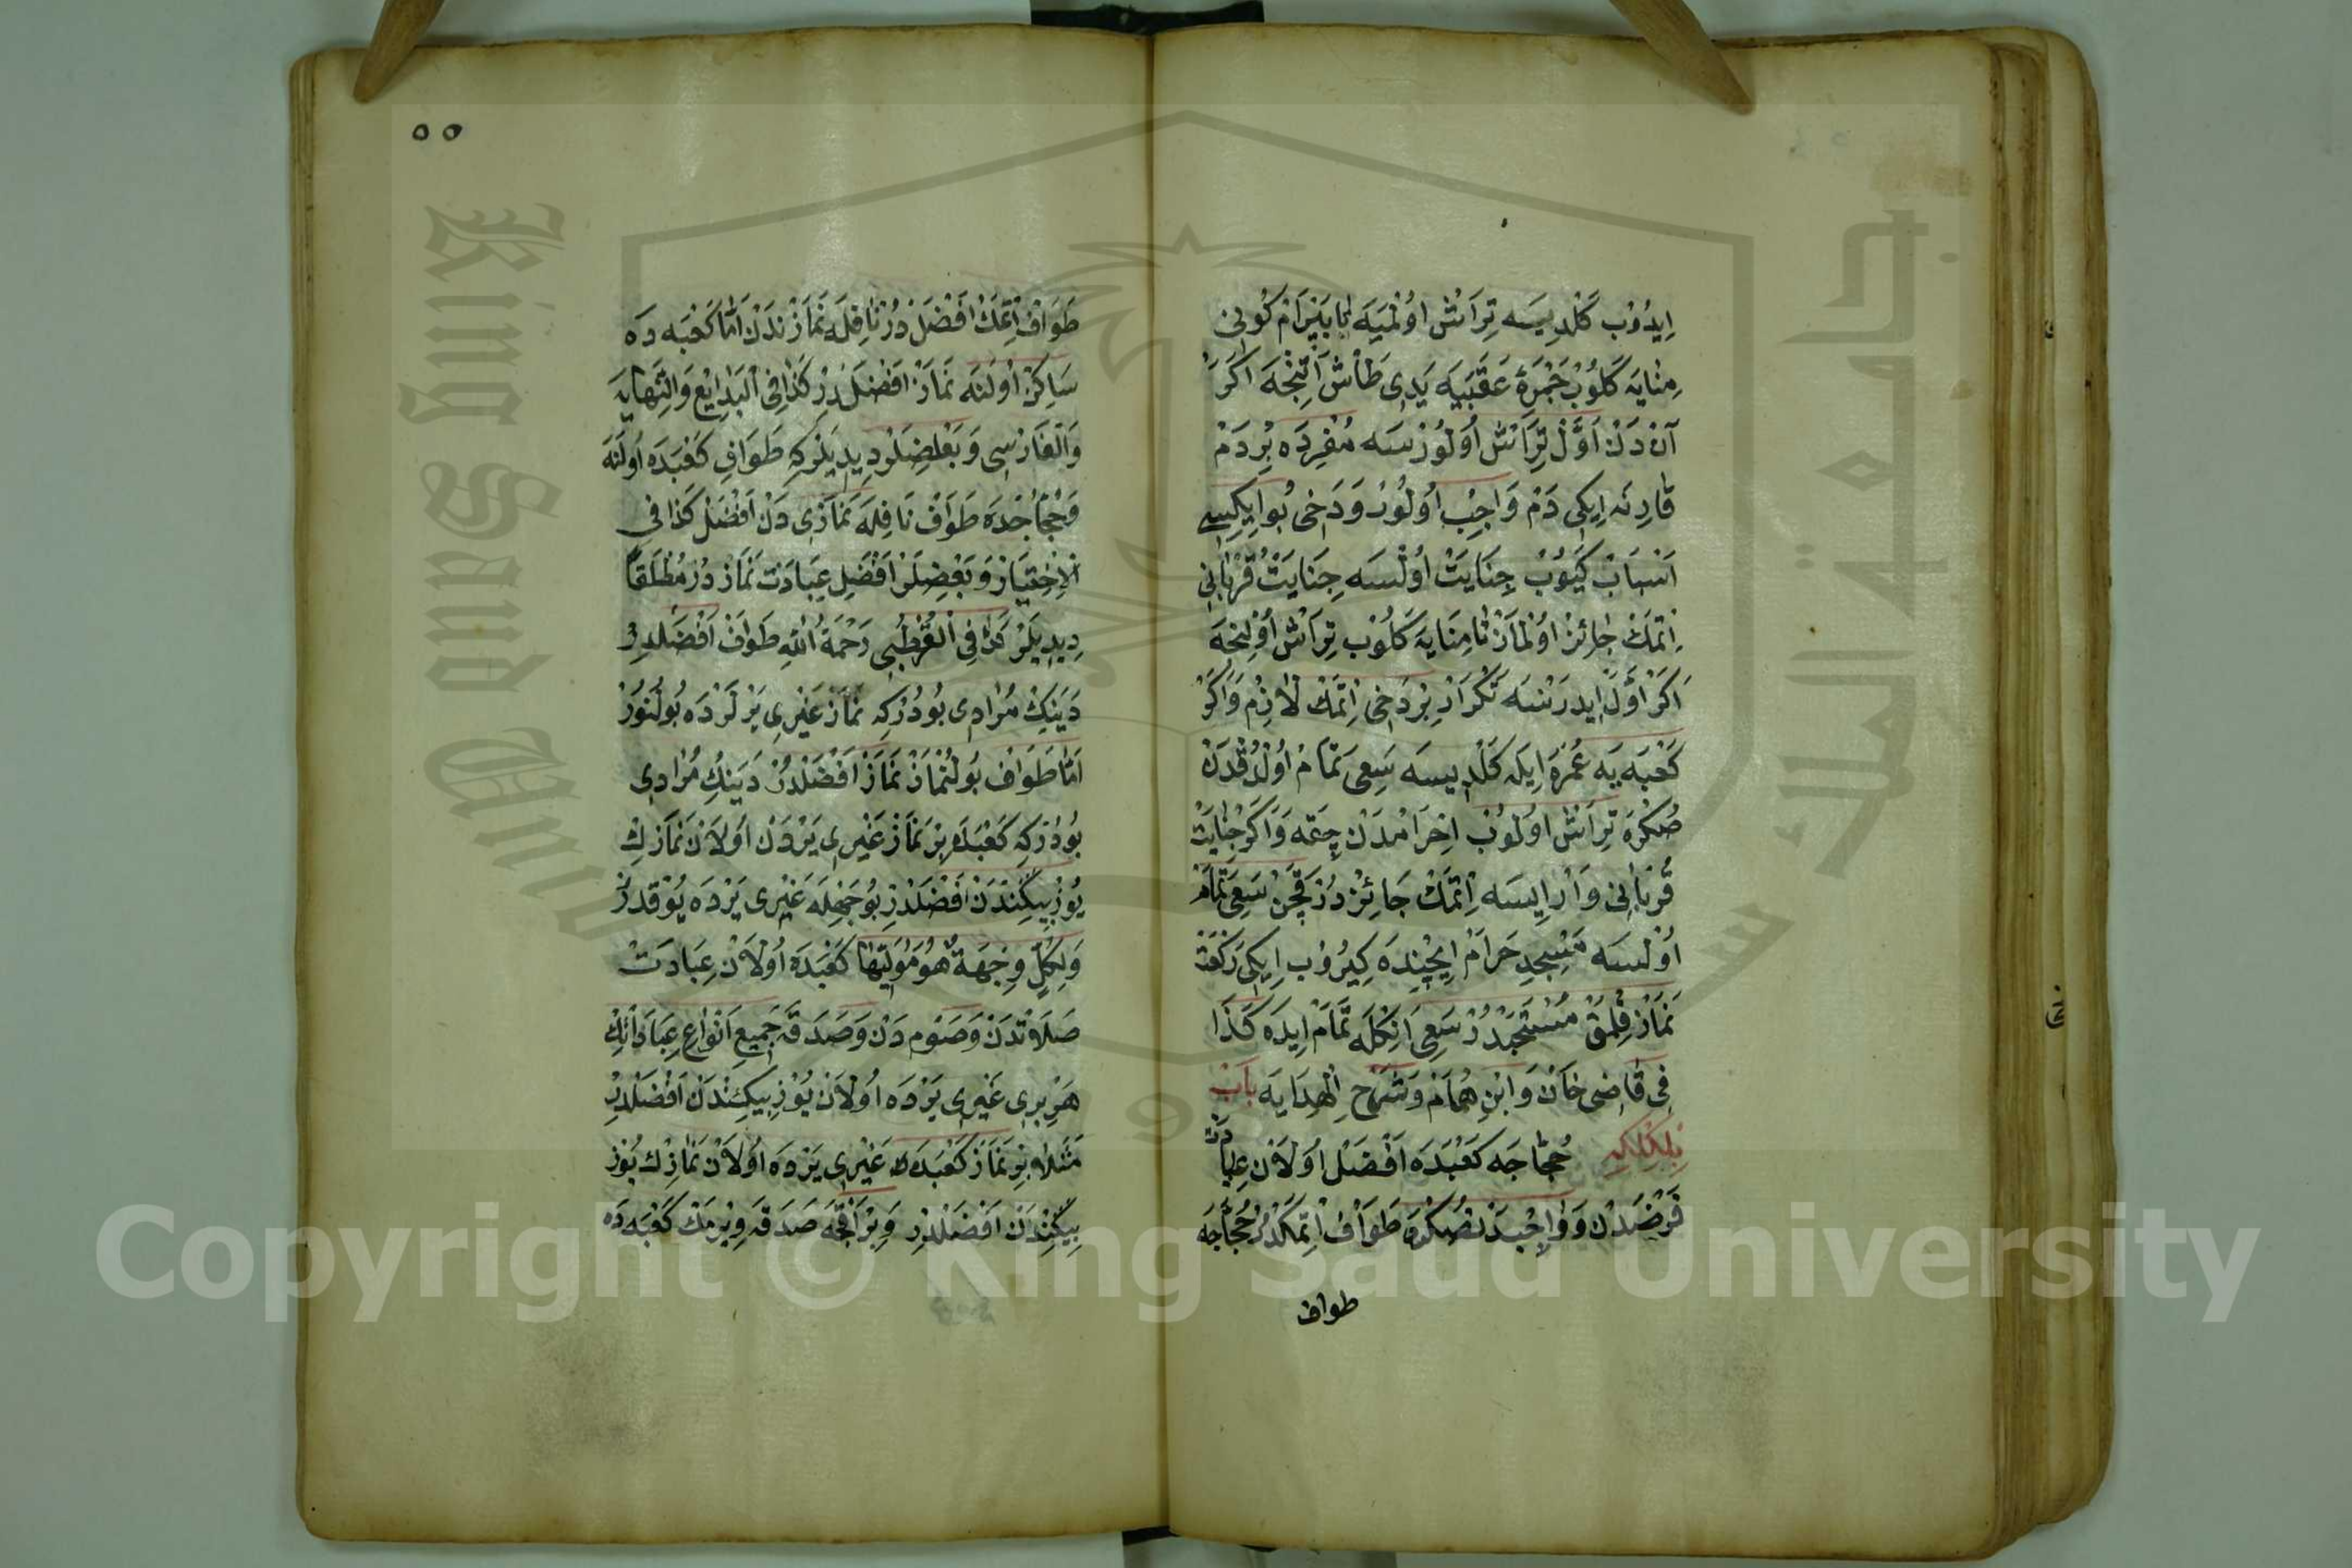 اِيدُوْبْ كَلْدِيسَه تِرَاشْ اوُلْمَيَه تَا بَيْرَامْ كُونِى
مِنَايَه كَلُوبْ جَمْرَهٔ عَقَبَيَه يَدِى طَاشْ اَتِنْجَه اَكَرْ
آنْدَنْ اَوَّلْ تِرَاشْ اُولُورْسَه مُفْرِدَه بِرْ دَمْ
قَارِنَه اِيكِى دَمْ وَاجِبْ اُولُورْ وَدَخِى بُو اِيكِيسِى
اَسْبَابْ كَيُوبْ جِنَايَتْ اُولْسَه جِنَايَتْ قُرْبَانِى
اِتْمَكْ جَائِزْ اوُلْمَازْ تَا مِنَايَه كَلُوبْ تِرَاشْ اُولِنْجَه
اَكَرْ اَوَّلْ اِيدَرْسَه تَكْرَارْ بِرْ دَخِى اِتْمَكْ لَازِمْ وَاَكَرْ
كَعْبَه يَه عُمْرَه اِيلَه كَلْدِيسَه سَعِى تَمَامْ اُولْدُقْدَنْ
صُكْرَه تِرَاشْ اوُلُوبْ اِحْرَامْدَنْ چِقَه وَاَكَرْ جِنَايَتْ
قُرْبَانِى وَارِيسَه اِتْمَكْ جَائِزْدُرْ قَچَنْ سَعِى تَمَامْ
اُولْسَه مَسْجِدِ حَرَامْ اِيچِنْدَه كِيرُوبْ اِيكِى رَكْعَتْ
نَمَازْ قِلْمَقْ مُسْتَحَبْدُرْ سَعِى اَنِكْلَه تَمَامْ اِيدَه كَذَا
فِى قَاضِى خَانْ وَابْنِ هُمَامْ وَشَرْحِ الْهِدَايَه بَابْ
بِلْكِلْكِه حُجَّاجَه كَعْبَدَه اَفْضَلْ اوُلَانْ عِبَادَتْ
فَرْضْدَنْ وَوَاجِبْدَنْ صُكْرَه طَوَافْ اِتْمَكْدُرْ حُجَّاجَه
طواف
٥٥
طَوَافْ اِتْمَكْ اَفْضَلْدُرْ نَافِلَه نَمَازْندَنْ اَمَّا كَعْبَه دَه
سَاكِنْ اُولَنَه نَمَازْ اَفْضَلْدِرْ كَذَا فِى الْبَدَايِعْ وَالنِّهَايَه
وَالْفَارْسِى وَبَعْضِلَرْ دِيدِيلَرْكِه طَوَافِ كَعْبَدَه اُولَنَه
وَحُجَّاجْدَه طَوَافْ نَافِلَه نَمَازِى دَنْ اَفْضَلْ كَذَا فِى
الْاِخْتِيَارْ وَبَعْضِلَرْ اَفْضَلِ عِبَادَتْ نَمَازْدُرْ مُطْلَقًا
دِيدِيلَرْ كَذَا فِى الْقُرْطُبِى رَحْمَةُ اللهِ طَوَافْ اَفْضَلْدِرْ
دَيَنِكْ مُرَادِى بُودُرْكِه نَمَازْ غَيْرِى يَرْلَرْدَه بُولُنُورْ
اَمَّا طَوَافْ بُولُنْمَازْ نَمَازْ اَفْضَلْدُرْ دَيَنِكْ مُرَادِى
بُودُرْكِه كَعْبَدَه بِرْ نَمَازْ غَيْرِى يَرْدَنْ اوُلَانْ نَمَازِكْ
يُوزْ بِيكِنْدَنْ اَفْضَلْدِرْ بُوجِهِلَه غَيْرِى يَرْدَه يُوقْدُرْ
وَلِكُلٍّ وِجْهَةٌ هُوَ مُوَلِّيهَا كَعْبَدَه اُولَانْ عِبَادَتْ
صَلَاتْدَنْ وَصَوْم دَنْ وَصَدَقَه جَمِيعِ اَنْوَاعِ عِبَادَاتِكْ
هَرْ بِرِى غَيْرِى يَرْدَه اُولَانْ يُوزْ بِيكِنْدَنْ اَفْضَلْدِرْ
مَثَلَا بِرْ نَمَازْ كَعْبَدَه غَيْرِى يَرْدَه اُولَانْ نَمَازِكْ يُوزْ
بِيكِنْدَنْ اَفْضَلْدِرْ وَبِرْ اَقْچَه صَدَقَه وِيرْمَكْ كَعْبَه دَه
King Saud Univ
Copyright © King Saud University